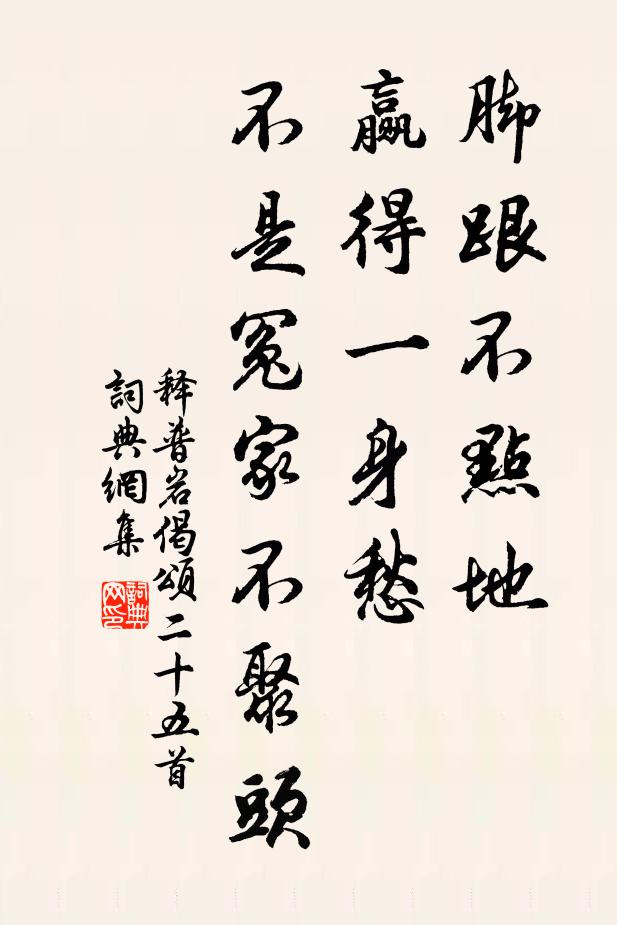 脚跟不點地
贏得一身愁
不是冤家不聚頭
释普岩偈頌二十五首
詞典網集
詞典网印